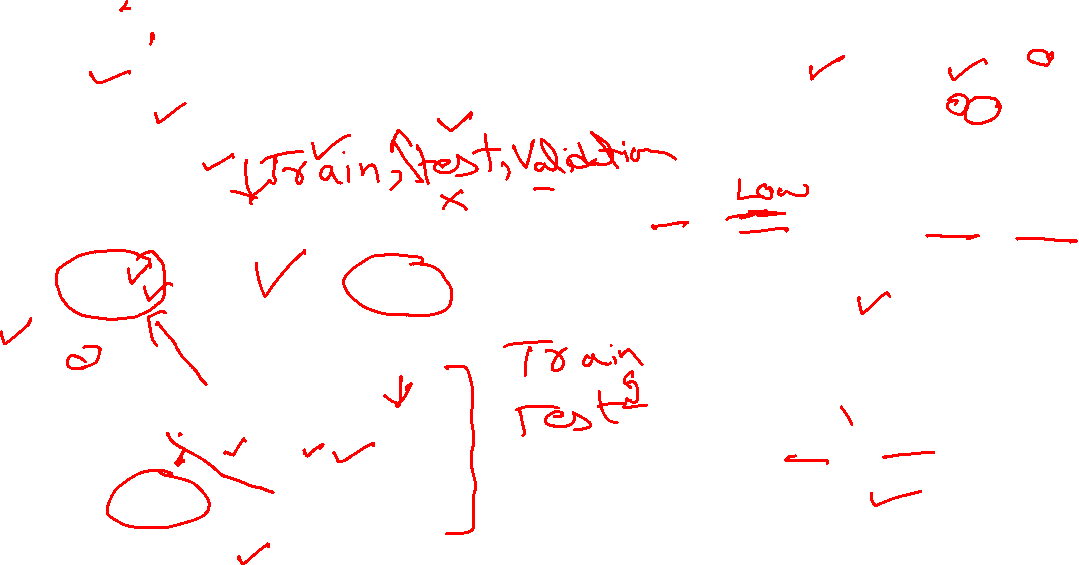 Train, test, Validation
Low
Train
Test